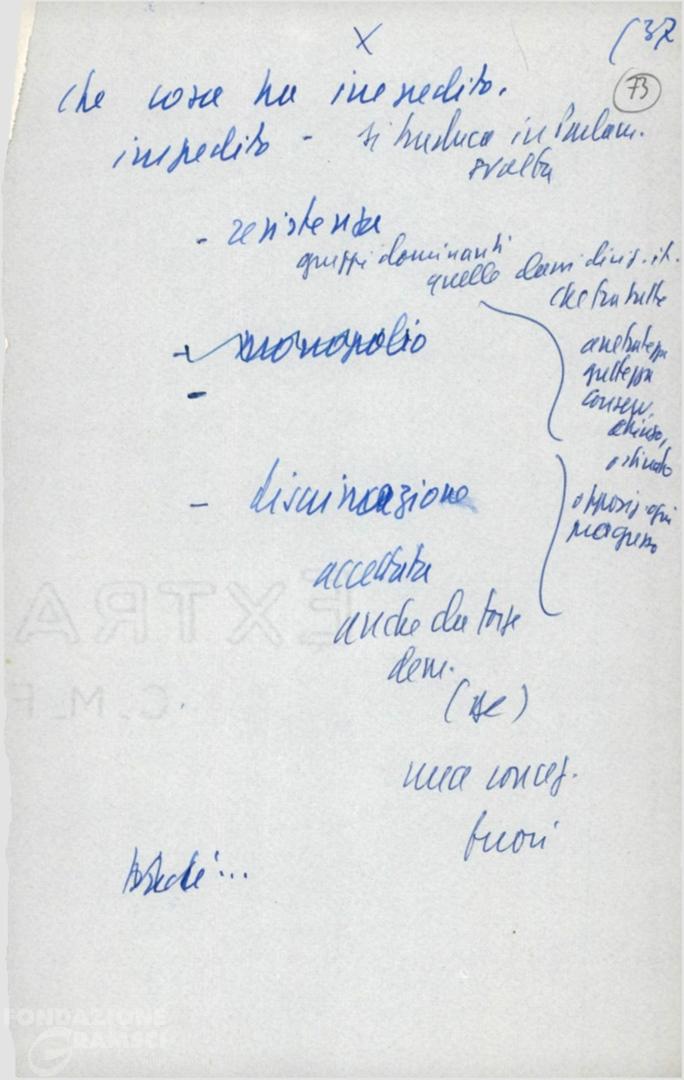 X
(37
73
che cosa ha impedito.
impedito - si traduca in Parlam.
svolta
- resistenza
gruppi dominanti
quelle classi dirig. it.
che fra tutte
arretratezza
grettezza
conserv.
chiuso,
ostinato
opposiz. ogni
progresso
- monopolio
-
- discriminazione
accettata
anche da forze
dem.
una concez.
fuori
EXTRA
C.M.F
FONDAZIONE
GRAMSCI